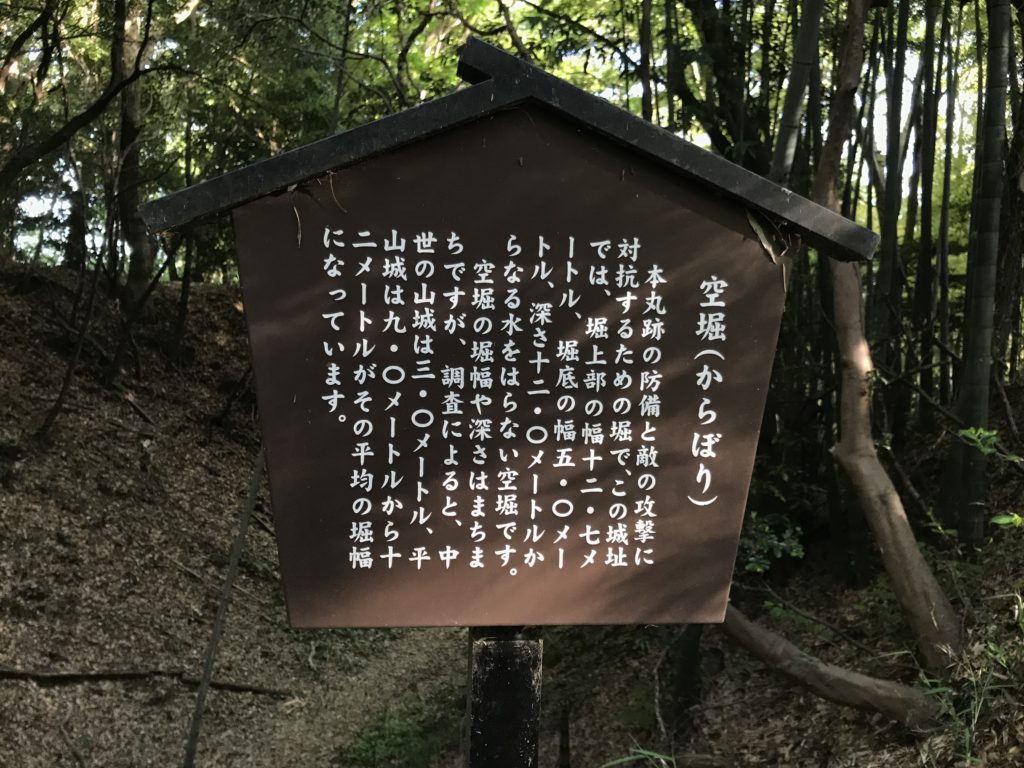 空堀(からぼり)
本丸跡の防備と敵の攻撃に
対抗するための堀で、この城址
では、堀上部の幅十二・七メ
ートル、堀底の幅五・〇メー
トル、深さ十二・〇メートルか
らなる水をはらない空堀です。
空堀の堀幅や深さはまちま
ちですが、調査によると、中
世の山城は三・〇メートル、平
山城は九・〇メートルから十
二メートルがその平均の堀幅
になっています。